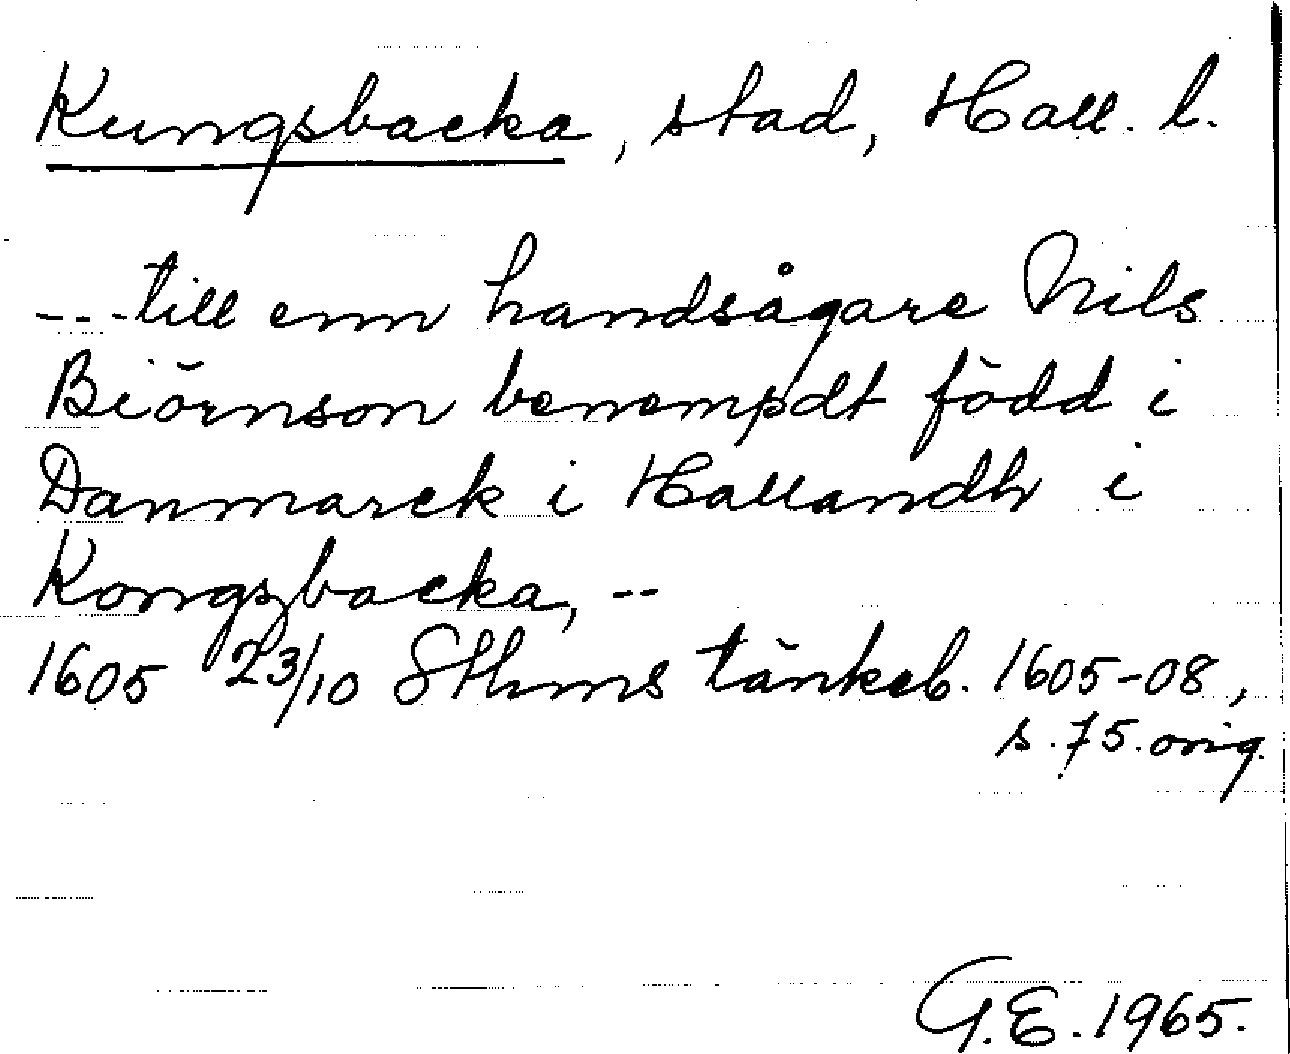 Kungsbacka, stad, Hall. l.
---till enn handsågare Nils
Biörnson benempdt född i
Danmarck i Hallandh i
Kongsbacka, --
1605 23/10 Sthms tänkeb. 1605-08,
s. 75. orig.
G.E. 1965.